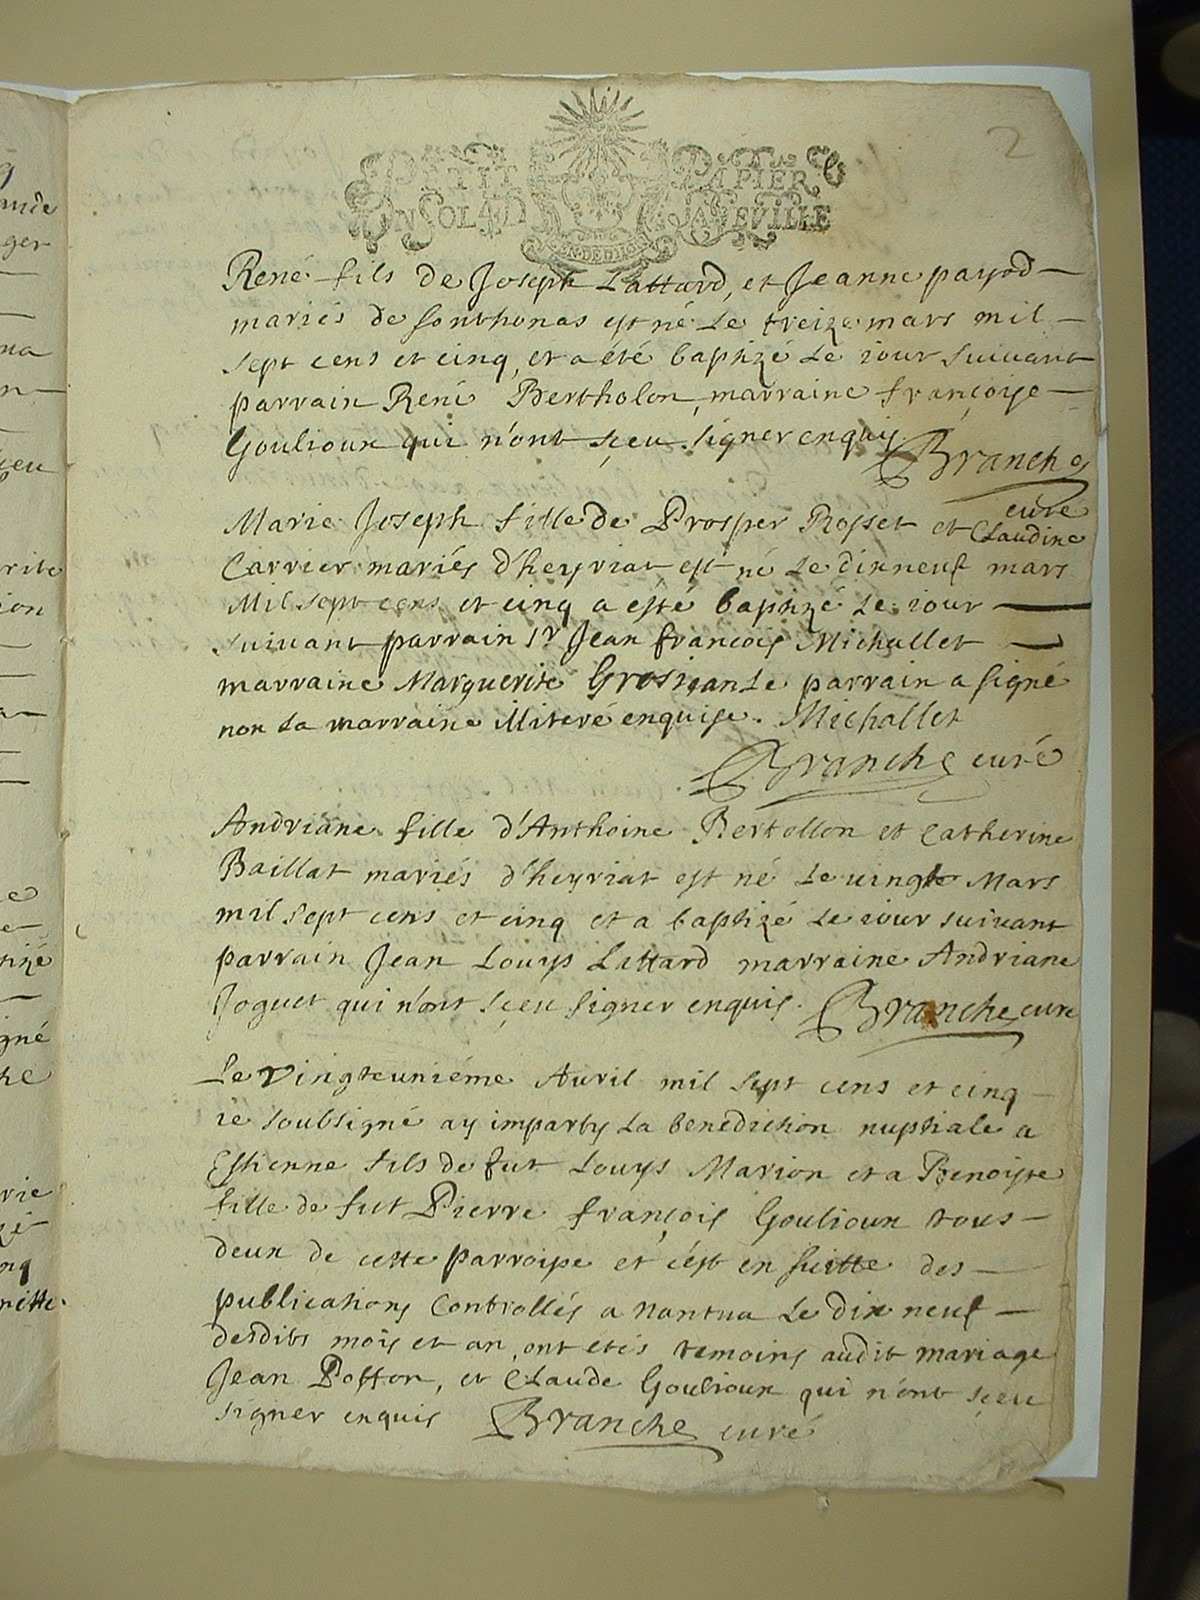 2
PETIT PAPIER
UN SOL 4D LA FEVILLE
René fils de Joseph Lattard, et Jeanne payod
mariés de sonthonas est né Le treize mars mil
sept cens et cinq, et a été baptizé Le iour suiuant
parrain René Bertholon, marraine françoise
Goulioux qui n'ont sçeu signer enquis
Branche
curé
Marie Joseph fille de Prosper Rosset et Claudine
Carrier mariés d'heyriat est né Le dixneuf mars
Mil sept cens et cinq a esté baptizé Le iour
suiuant parrain sr Jean françois Michallet
marraine Marguerite Grosjan Le parrain a signé
non La marraine illiteré enquise. Michallet
Branche curé
Andriane fille d'Anthoine Bertollon et Catherine
Baillat mariés d'heyriat est né Le uingte Mars
mil sept cens et cinq et a baptizé Le iour suiuant
parrain Jean Louys Lattard marraine Andriane
Joguet qui n'ont sçeu signer enquis. Branche curé
Le Vingteunième Auril mil sept cens et cinq
ie soubsigné ay imparty La benediction nuptiale a
Estienne fils de fut Louys Marion et a Benoiste
fille de fut Pierre françois Goulioux tous
deux de cette parroisse et c'est en suitte des
publications Controllés a nantua Le dix neuf
desdits mois et an, ont etés temoins audit mariage
Jean Potton, et Claude Goulioux qui n'ont sçeu
signer enquis Branche curé